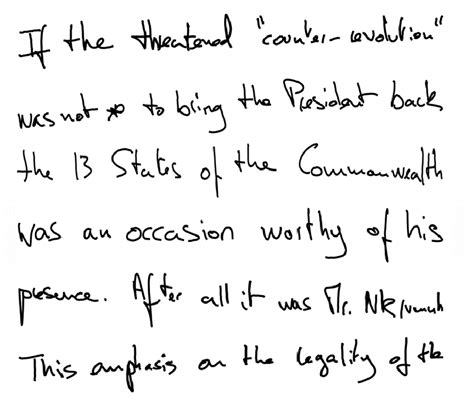 If the threatened "counter-revolution"
was not to bring the President back
the 13 States of the Commonwealth
was an occasion worthy of his
presence. After all it was Mr. Nkrumah
This emphasis on the legality of the